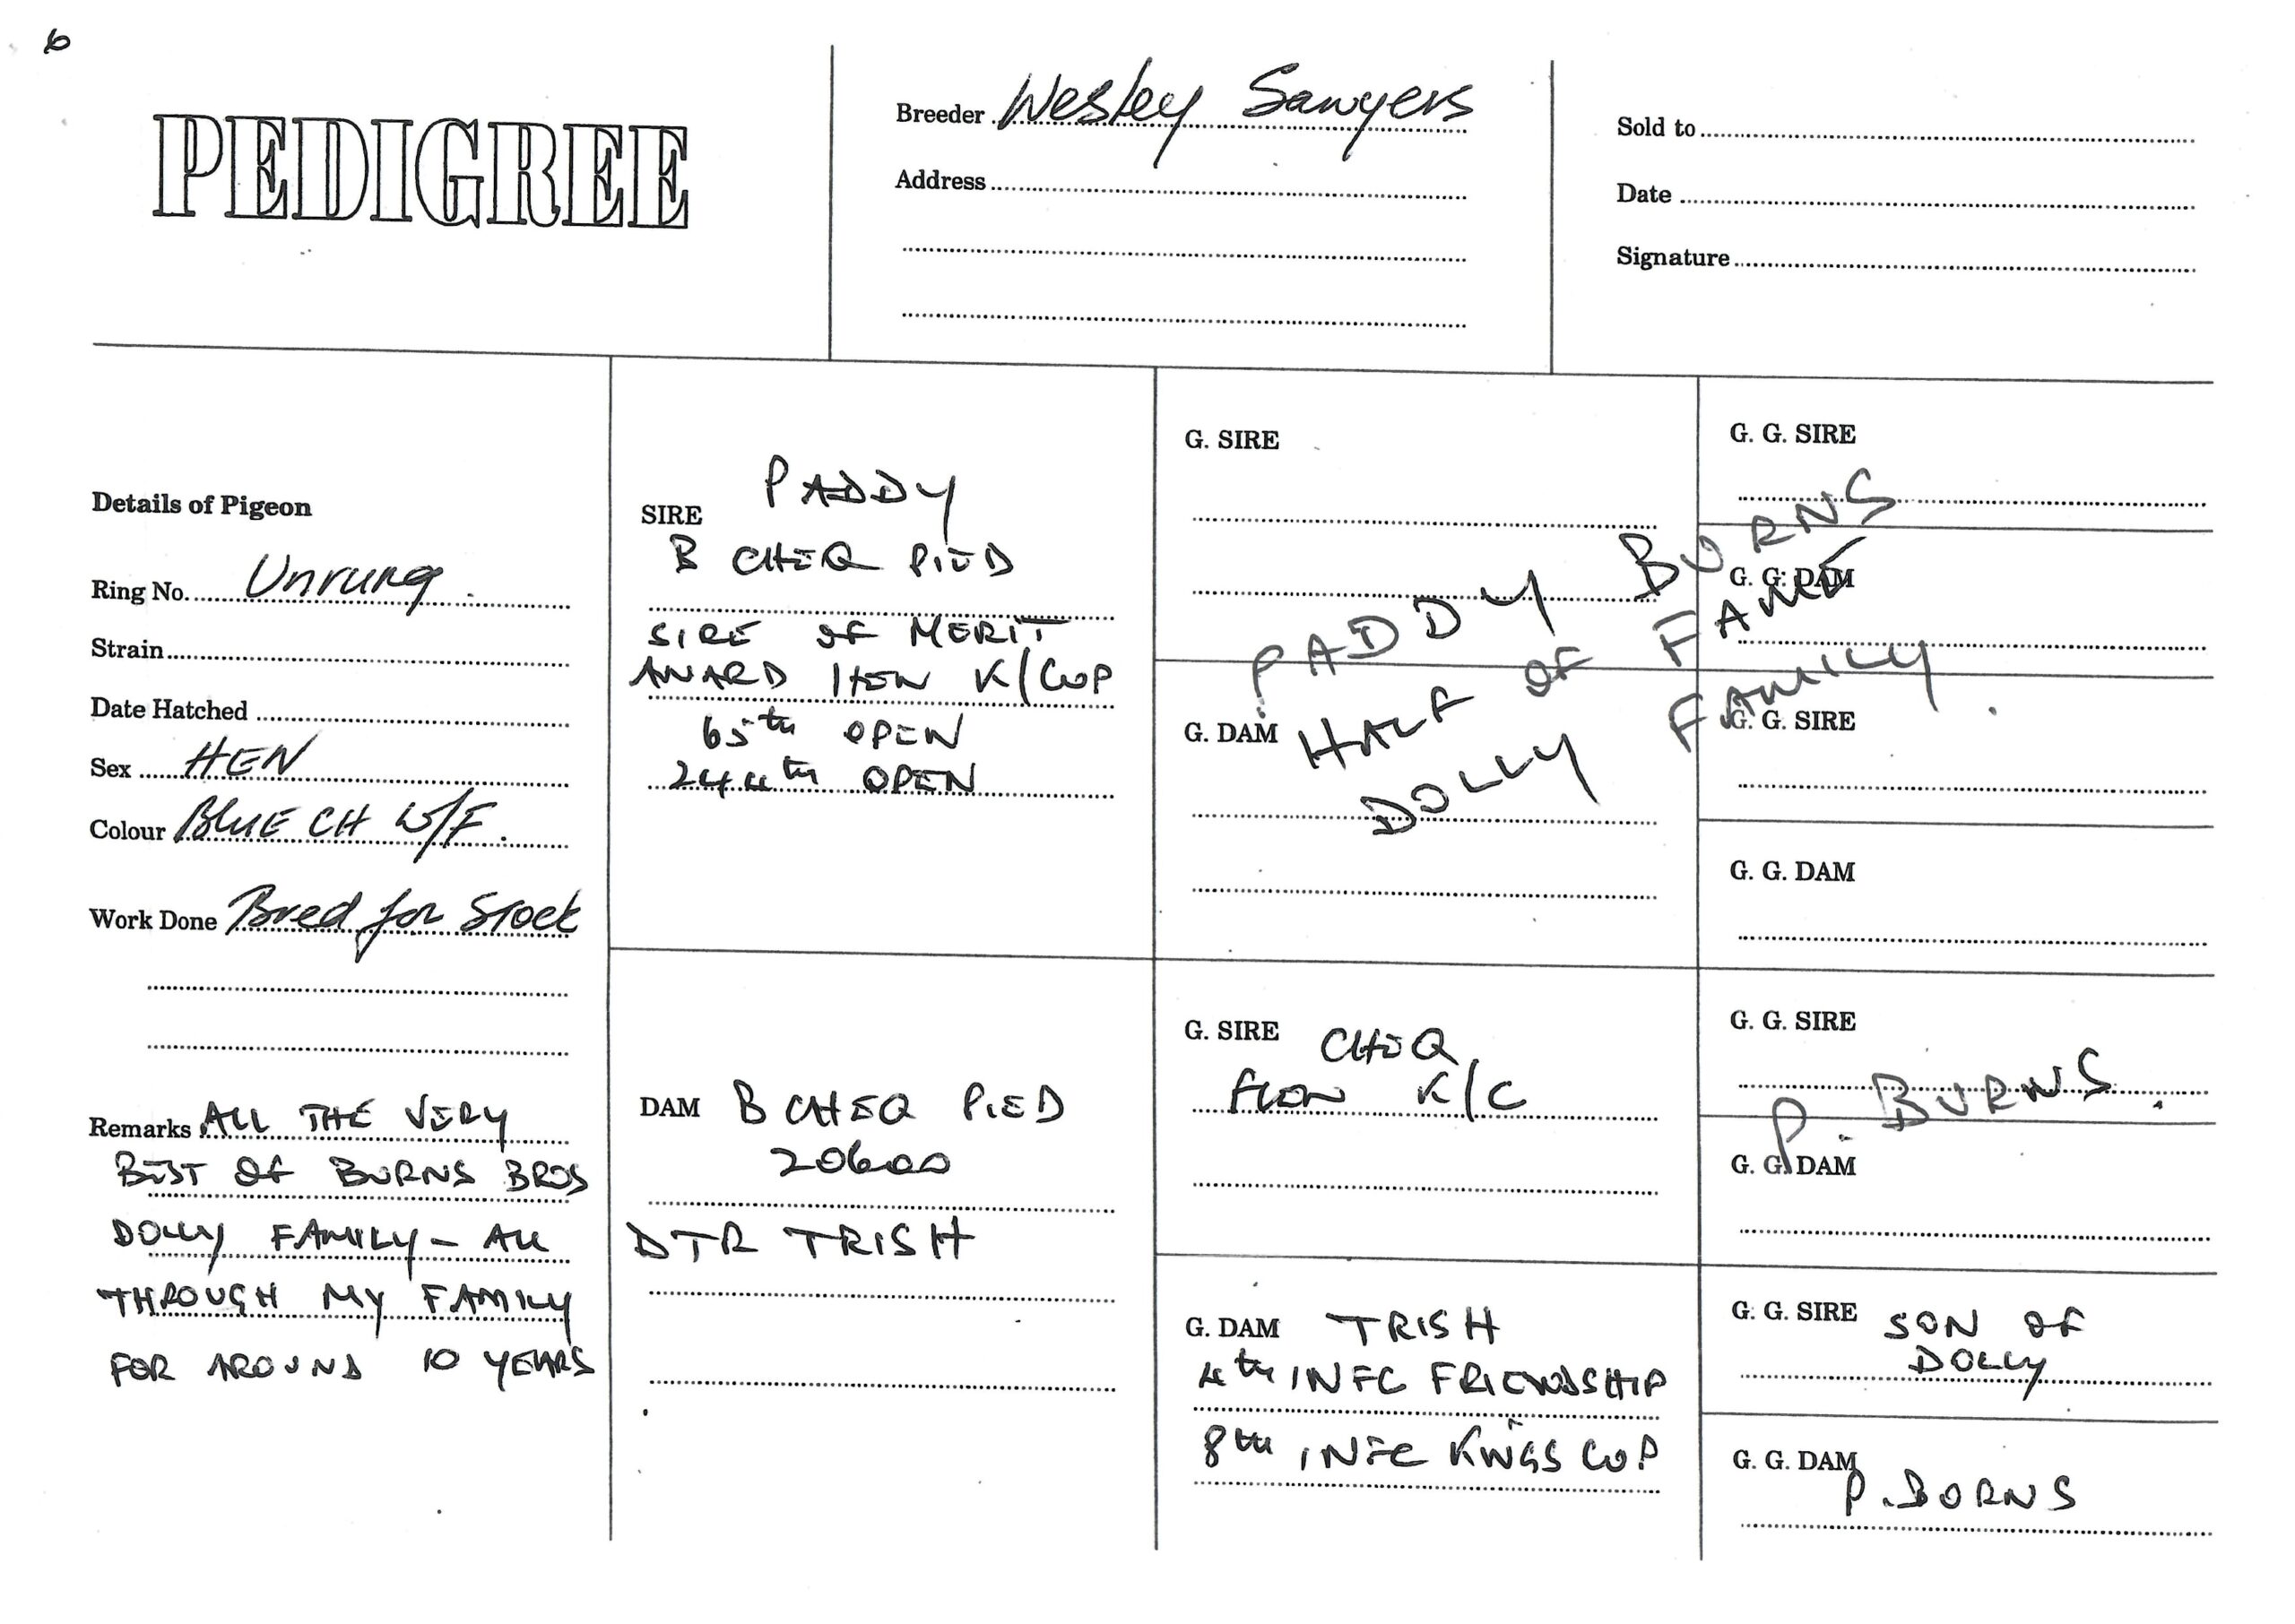 6
PEDIGREE
Breeder Wesley Sawyers
Address
Sold to
Date
Signature
Details of Pigeon
Ring No. Unrung
Strain
Date Hatched
Sex HEN
Colour BLUE CH W/F.
Work Done Bred for Stock
Remarks ALL THE VERY
BEST OF BURNS BROS
DOLLY FAMILY - ALL
THROUGH MY FAMILY
FOR AROUND 10 YEARS
SIRE PADDY
B CHEQ PIED
SIRE OF MERIT
AWARD 1 HEN K/CUP
65th OPEN
244th OPEN
DAM B CHEQ PIED
20600
DTR TRISH
G. SIRE
G. DAM
PADDY BURNS
HALF OF FAME
DOLLY FAMILY.
G. SIRE CHEQ
FLOWN K/C
G. DAM TRISH
4th INFC FRIENDSHIP
8th INFC KINGS CUP
G. G. SIRE
G. G. DAM
G. G. SIRE
G. G. DAM
G. G. SIRE
P. BURNS.
G. G. DAM
G. G. SIRE SON OF
DOLLY
G. G. DAM
P. BURNS